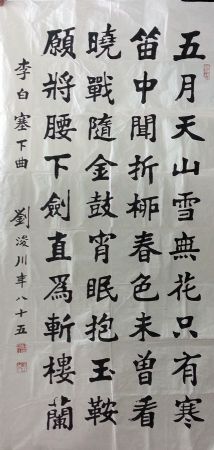 五月天山雪無花只有寒
笛中聞折柳春色未曾看
曉戰隨金鼓宵眠抱玉鞍
願將腰下劍直爲斬樓蘭
李白塞下曲 劉浚川年八十五